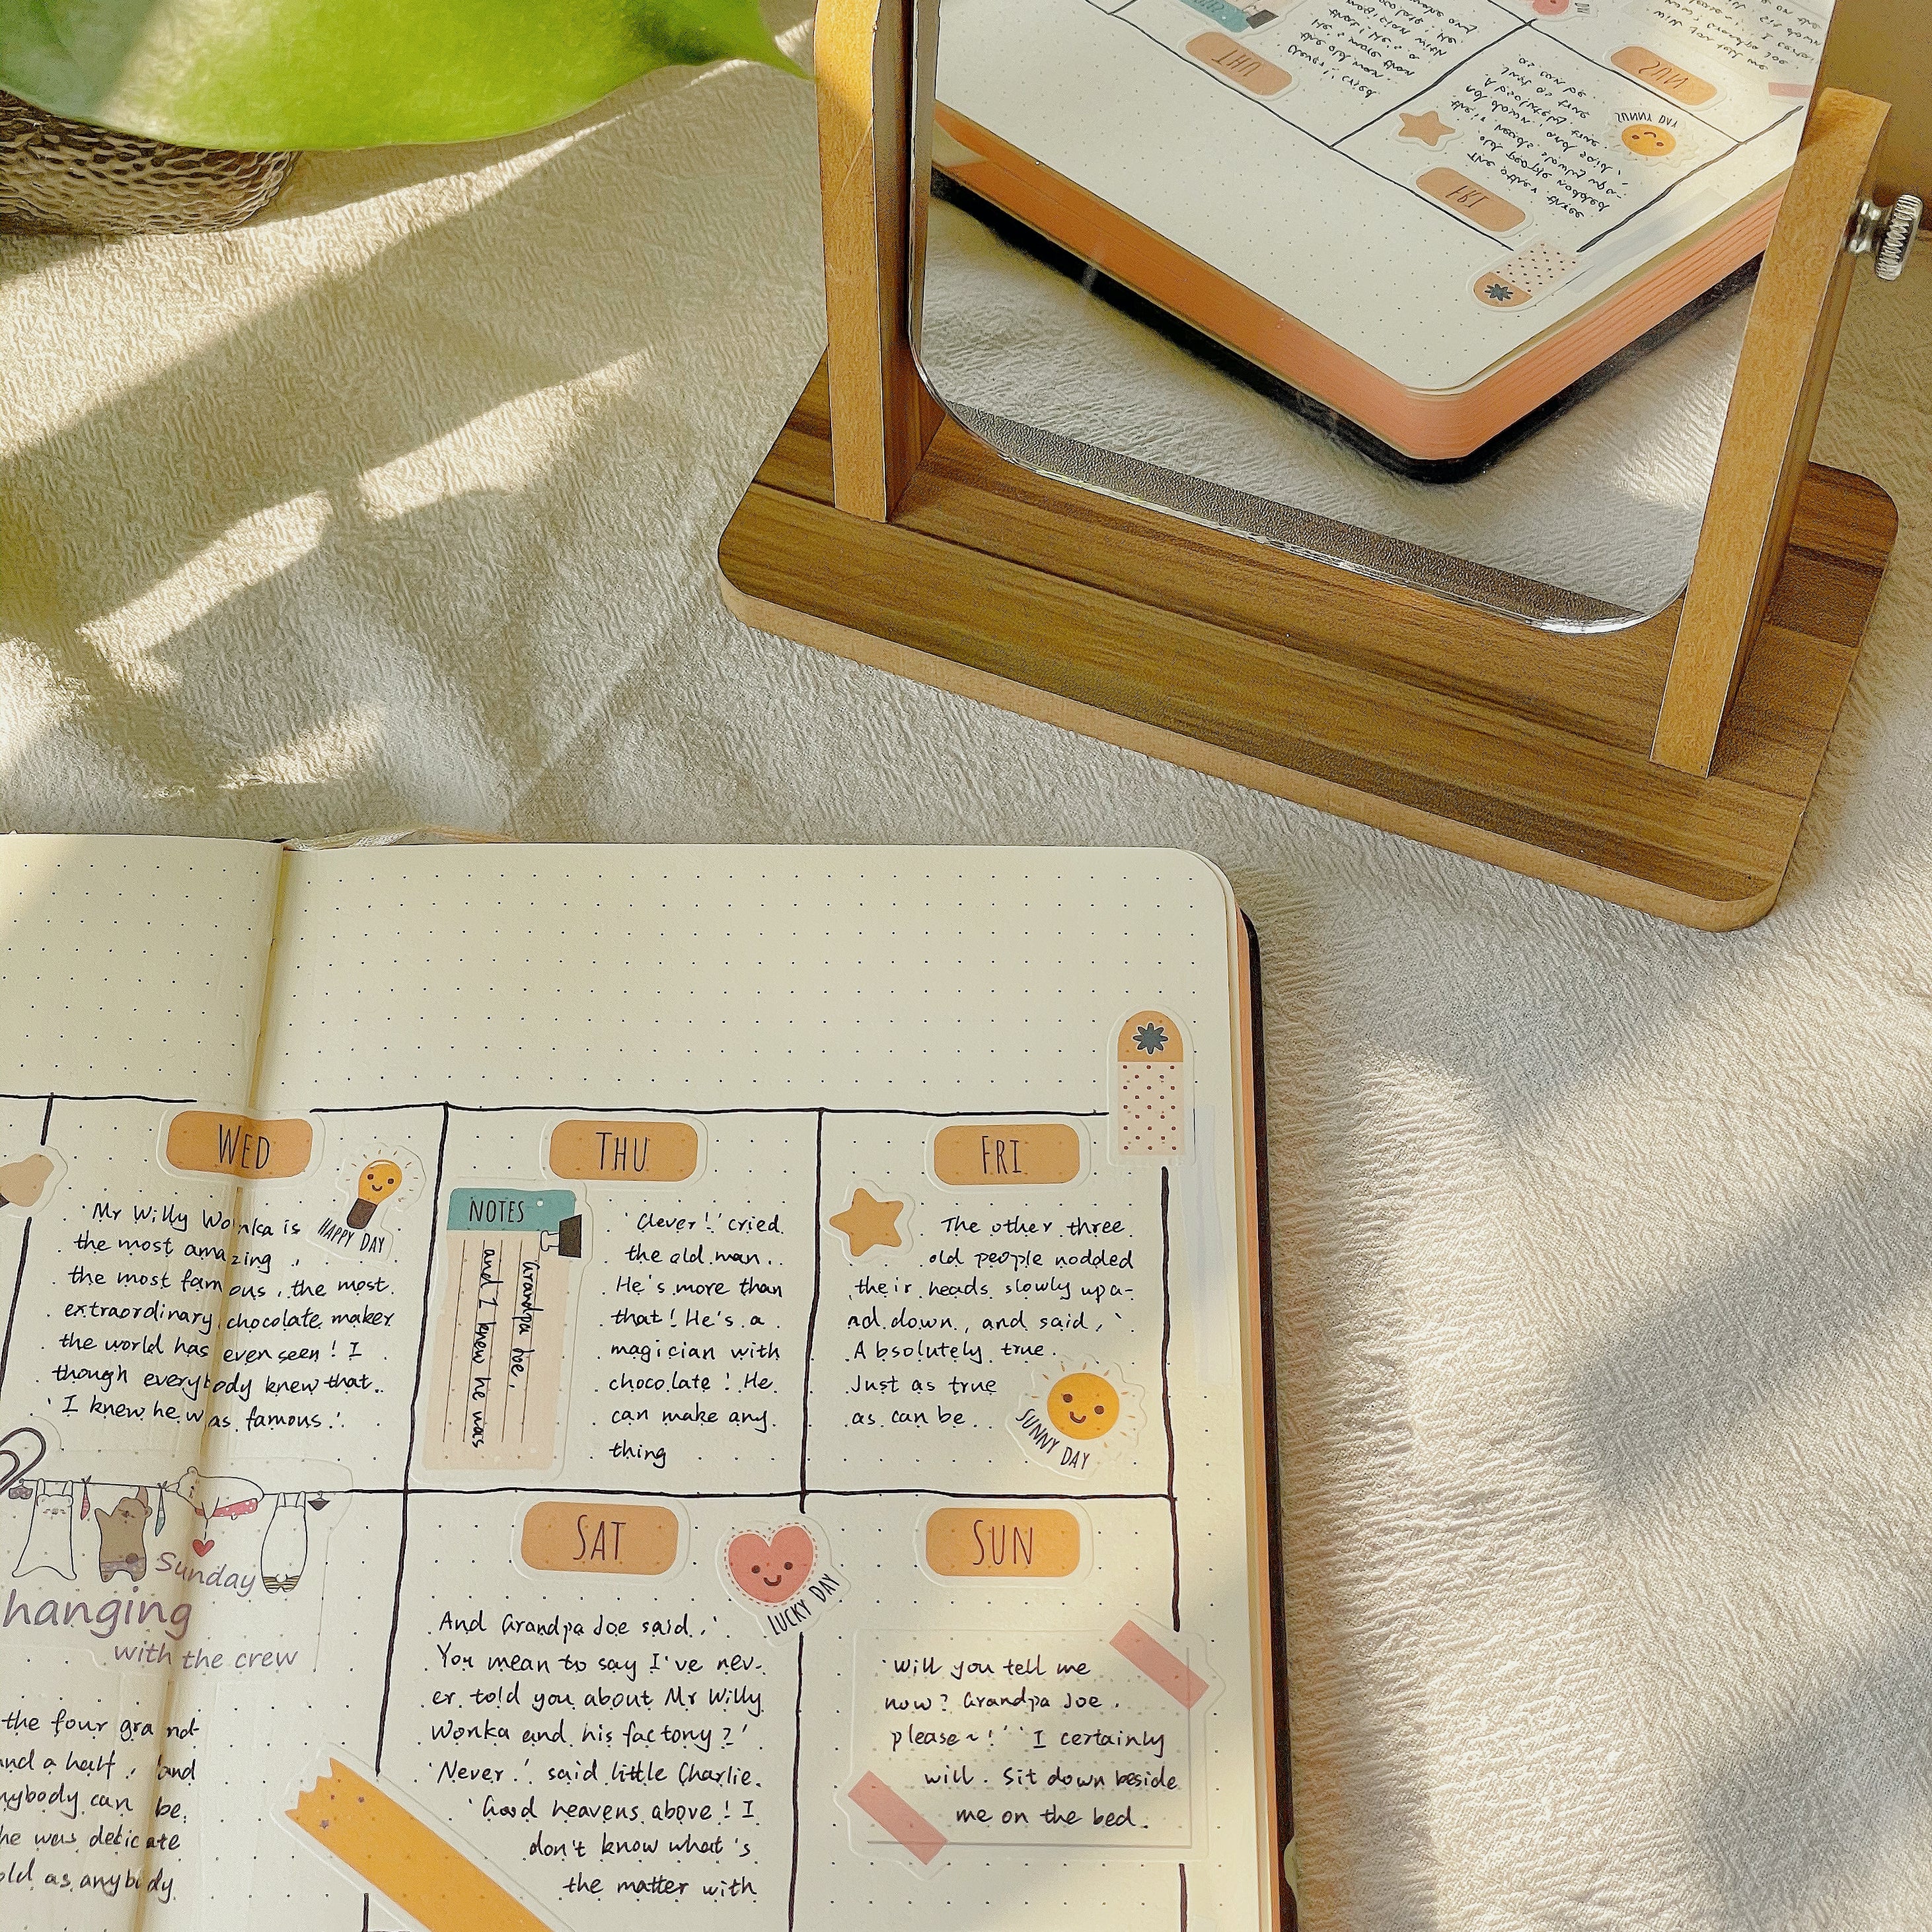 WED
HAPPY DAY
'Mr Willy Wonka is
the most amazing,
the most famous, the most
extraordinary chocolate maker
the world has even seen! I
though everybody knew that.
'I knew he was famous.'
Sunday
hanging
with the crew
the four grand
and a half, and
anybody can be.
he was delicate
old as anybody
THU
NOTES
Grandpa Joe,
and I knew he was
'Clever!' cried
the old man.
He's more than
that! He's a
magician with
chocolate! He
can make any-
thing
FRI
The other three
old people nodded
their heads slowly up a-
nd down, and said, '
Absolutely true.
Just as true
as can be.
SUNNY DAY
SAT
LUCKY DAY
And Grandpa Joe said, '
You mean to say I've nev-
er told you about Mr Willy
Wonka and his factory?'
'Never.' said little Charlie.
'Good heavens above! I
don't know what's
the matter with
SUN
'Will you tell me
now? Grandpa Joe.
please~!' 'I certainly
will. Sit down beside
me on the bed.
THU
FRI
SUN
SUNNY DAY